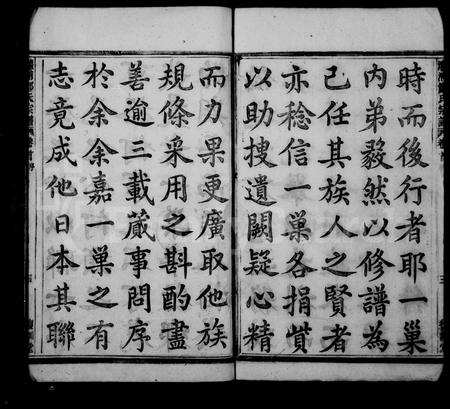 時而後行者耶一巢
內弟毅然以修譜為
已任其族人之賢者
亦稔信一巢各捐貲
以助搜遺闕疑心精
而力果更廣取他族
規條采用之斟酌盡
善逾三載蕆事問序
於余余嘉一巢之有
志竟成他日本其聯